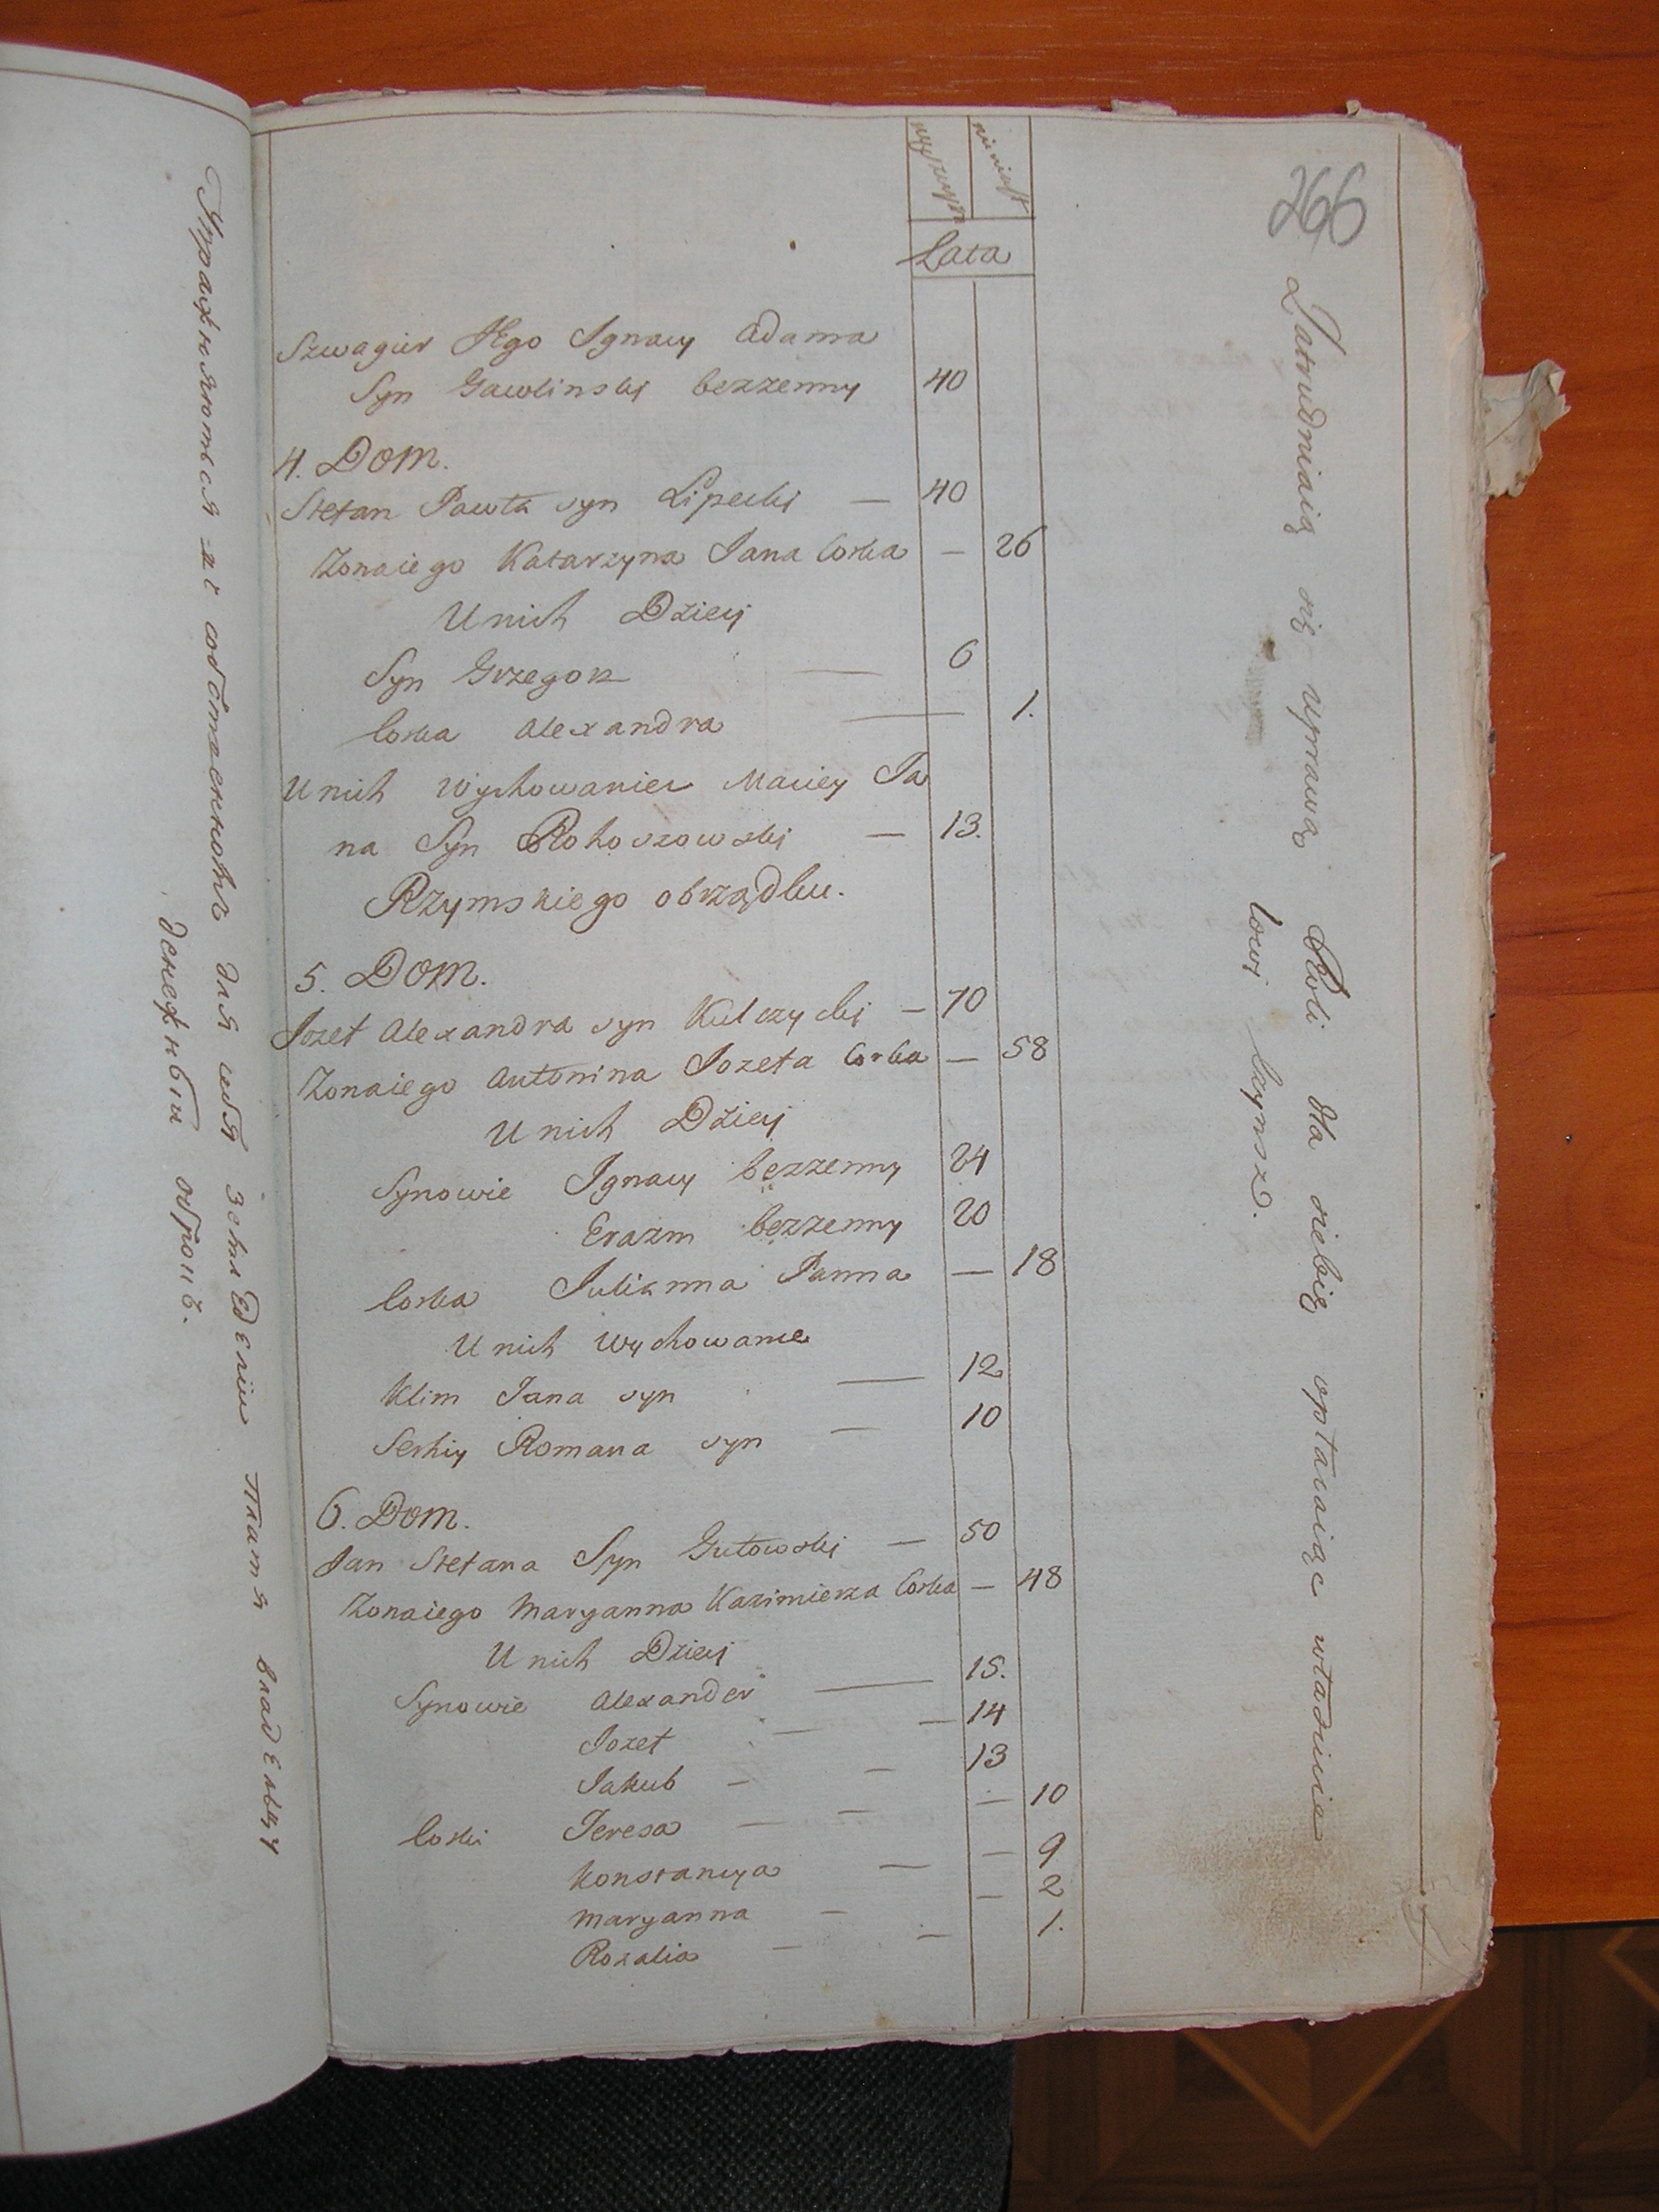 266
mężczyzn
niewiast
Lata
Szwagier Jego Ignacy Adama
Syn Gawlinski bezzenny 40
4. Dom.
Stefan Pawła syn Lipecki — 40
Zona iego Katarzyna Jana Corka — 26
U nich Dzieci
Syn Grzegorz — 6
Corka Alexandra — 1.
U nich Wychowaniec Maciey Ja
na Syn Rohoszowski — 13.
Rzymskiego obrządku.
5. Dom.
Jozef Alexandra syn Kulczycki — 70
Zona iego Antonina Jozefa Corka — 58
U nich Dzieci
Synowie Ignacy bezzenny 24
Erazm bezzenny 20
Corka Julianna Panna — 18
U nich Wychowańce
Klim Jana syn — 12
Serhiy Romana syn — 10
6. Dom.
Jan Stefana Syn Gutowski — 50
Zona iego Maryanna Kazimierza Corka — 48
U nich Dzieci
Synowie Alexander — 15.
Jozef — 14
Jakub — 13
Corki Teresa — 10
Konstancya — 9
Maryanna — 2
Rozalia — 1.
Zatrudniaią się uprawą Roli dla siebię opłacaiąc właścicie
lowi czynsz.
собственною для себя земледелiем платя владельцу
денежный оброкъ.